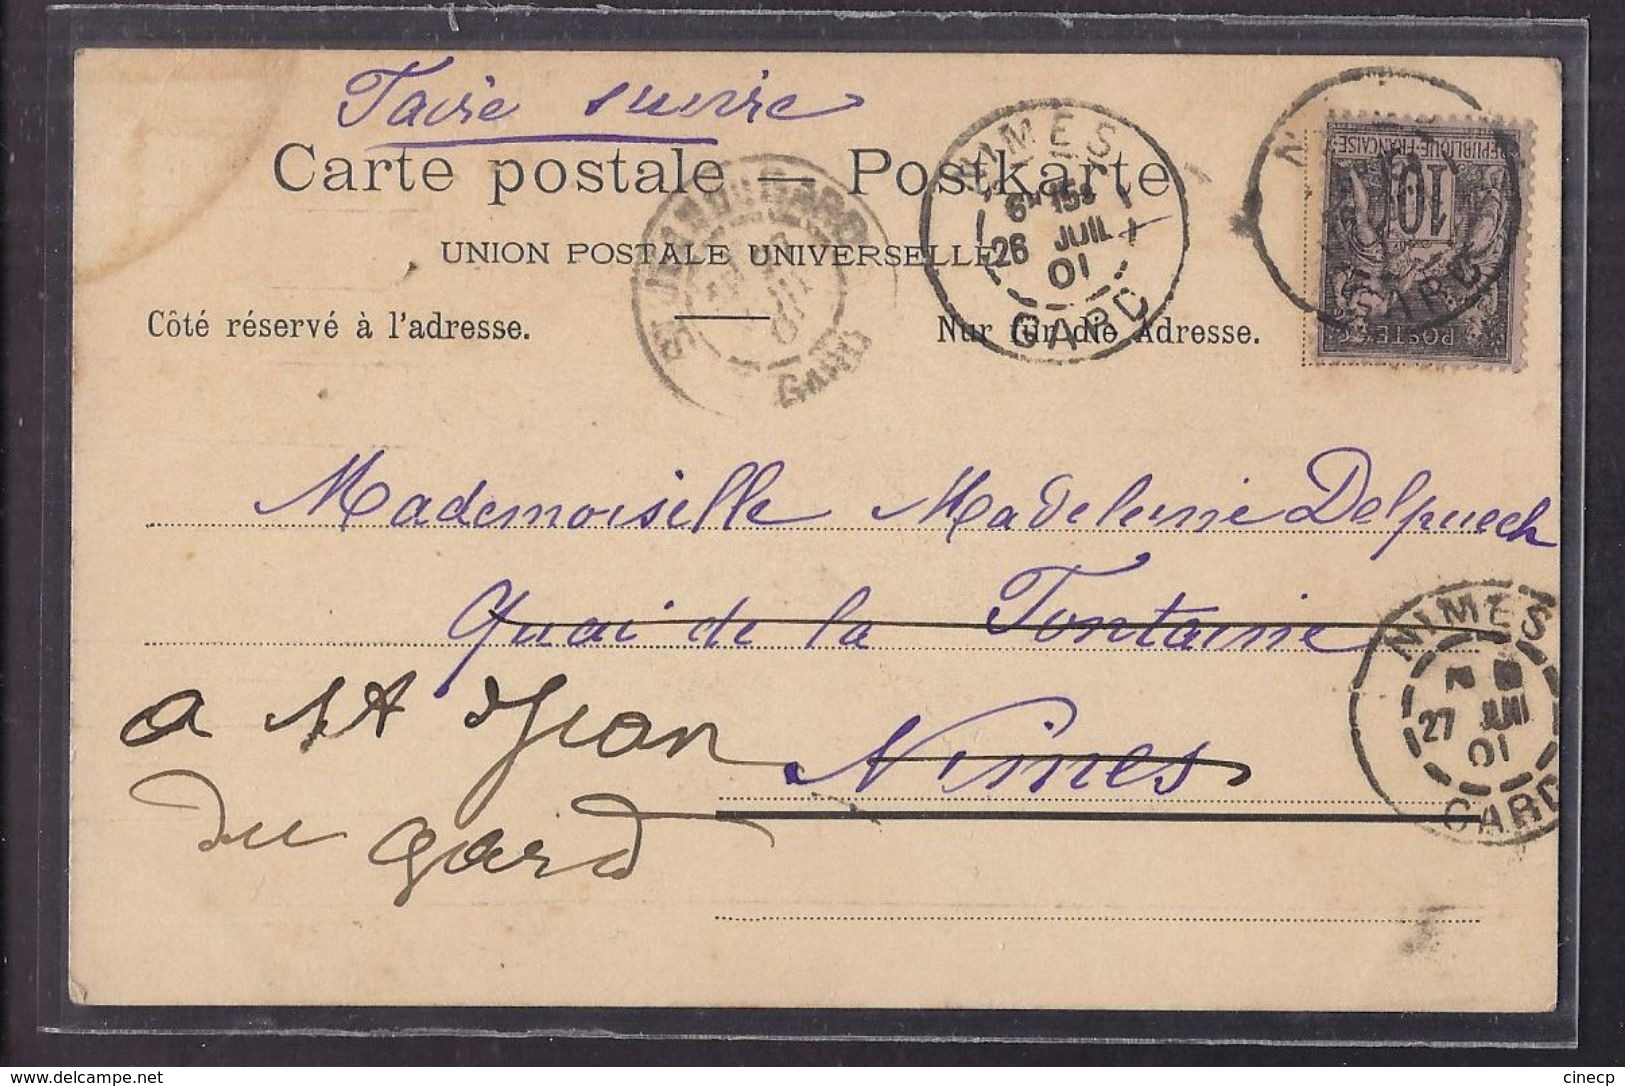 Faire suivre
Carte postale — Postkarte
UNION POSTALE UNIVERSELLE
Côté réservé à l'adresse.
Nur für die Adresse.
NIMES
6E 15S
26 JUIL
01
GARD
ST JEAN-DU-GARD
GARD
RÉPUBLIQUE FRANÇAISE
10
POSTES
Mademoiselle Madeleine Delpuech
Quai de la Fontaine
Nimes
a St Jean
du gard
NIMES
27 JUIL
01
GARD
www.delcampe.net
cinecp